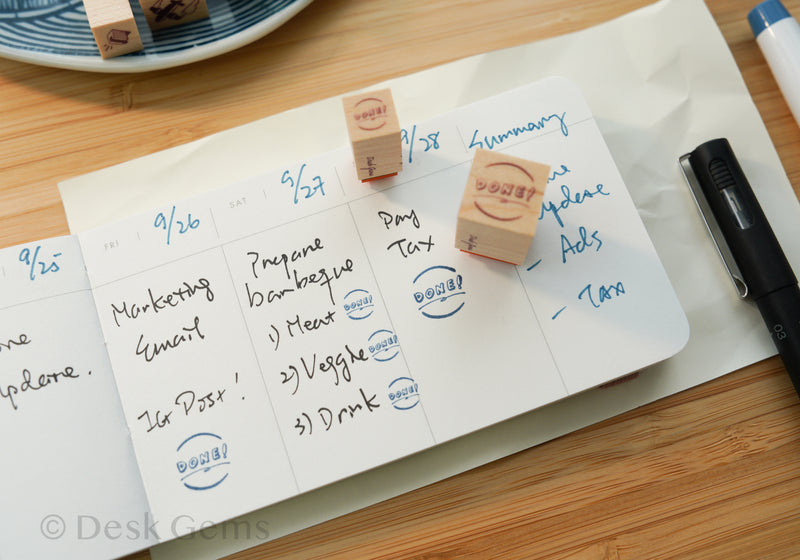 9/25
FRI
9/26
Marketing
Email
IG Post!
DONE!
SAT
9/27
Prepare
barbeque
1) Meat DONE!
2) Veggie DONE!
3) Drink DONE!
9/28
Pay
Tax
DONE!
Summary
- Ads
- Tax
DONE!
DONE!
03
© Desk Gems